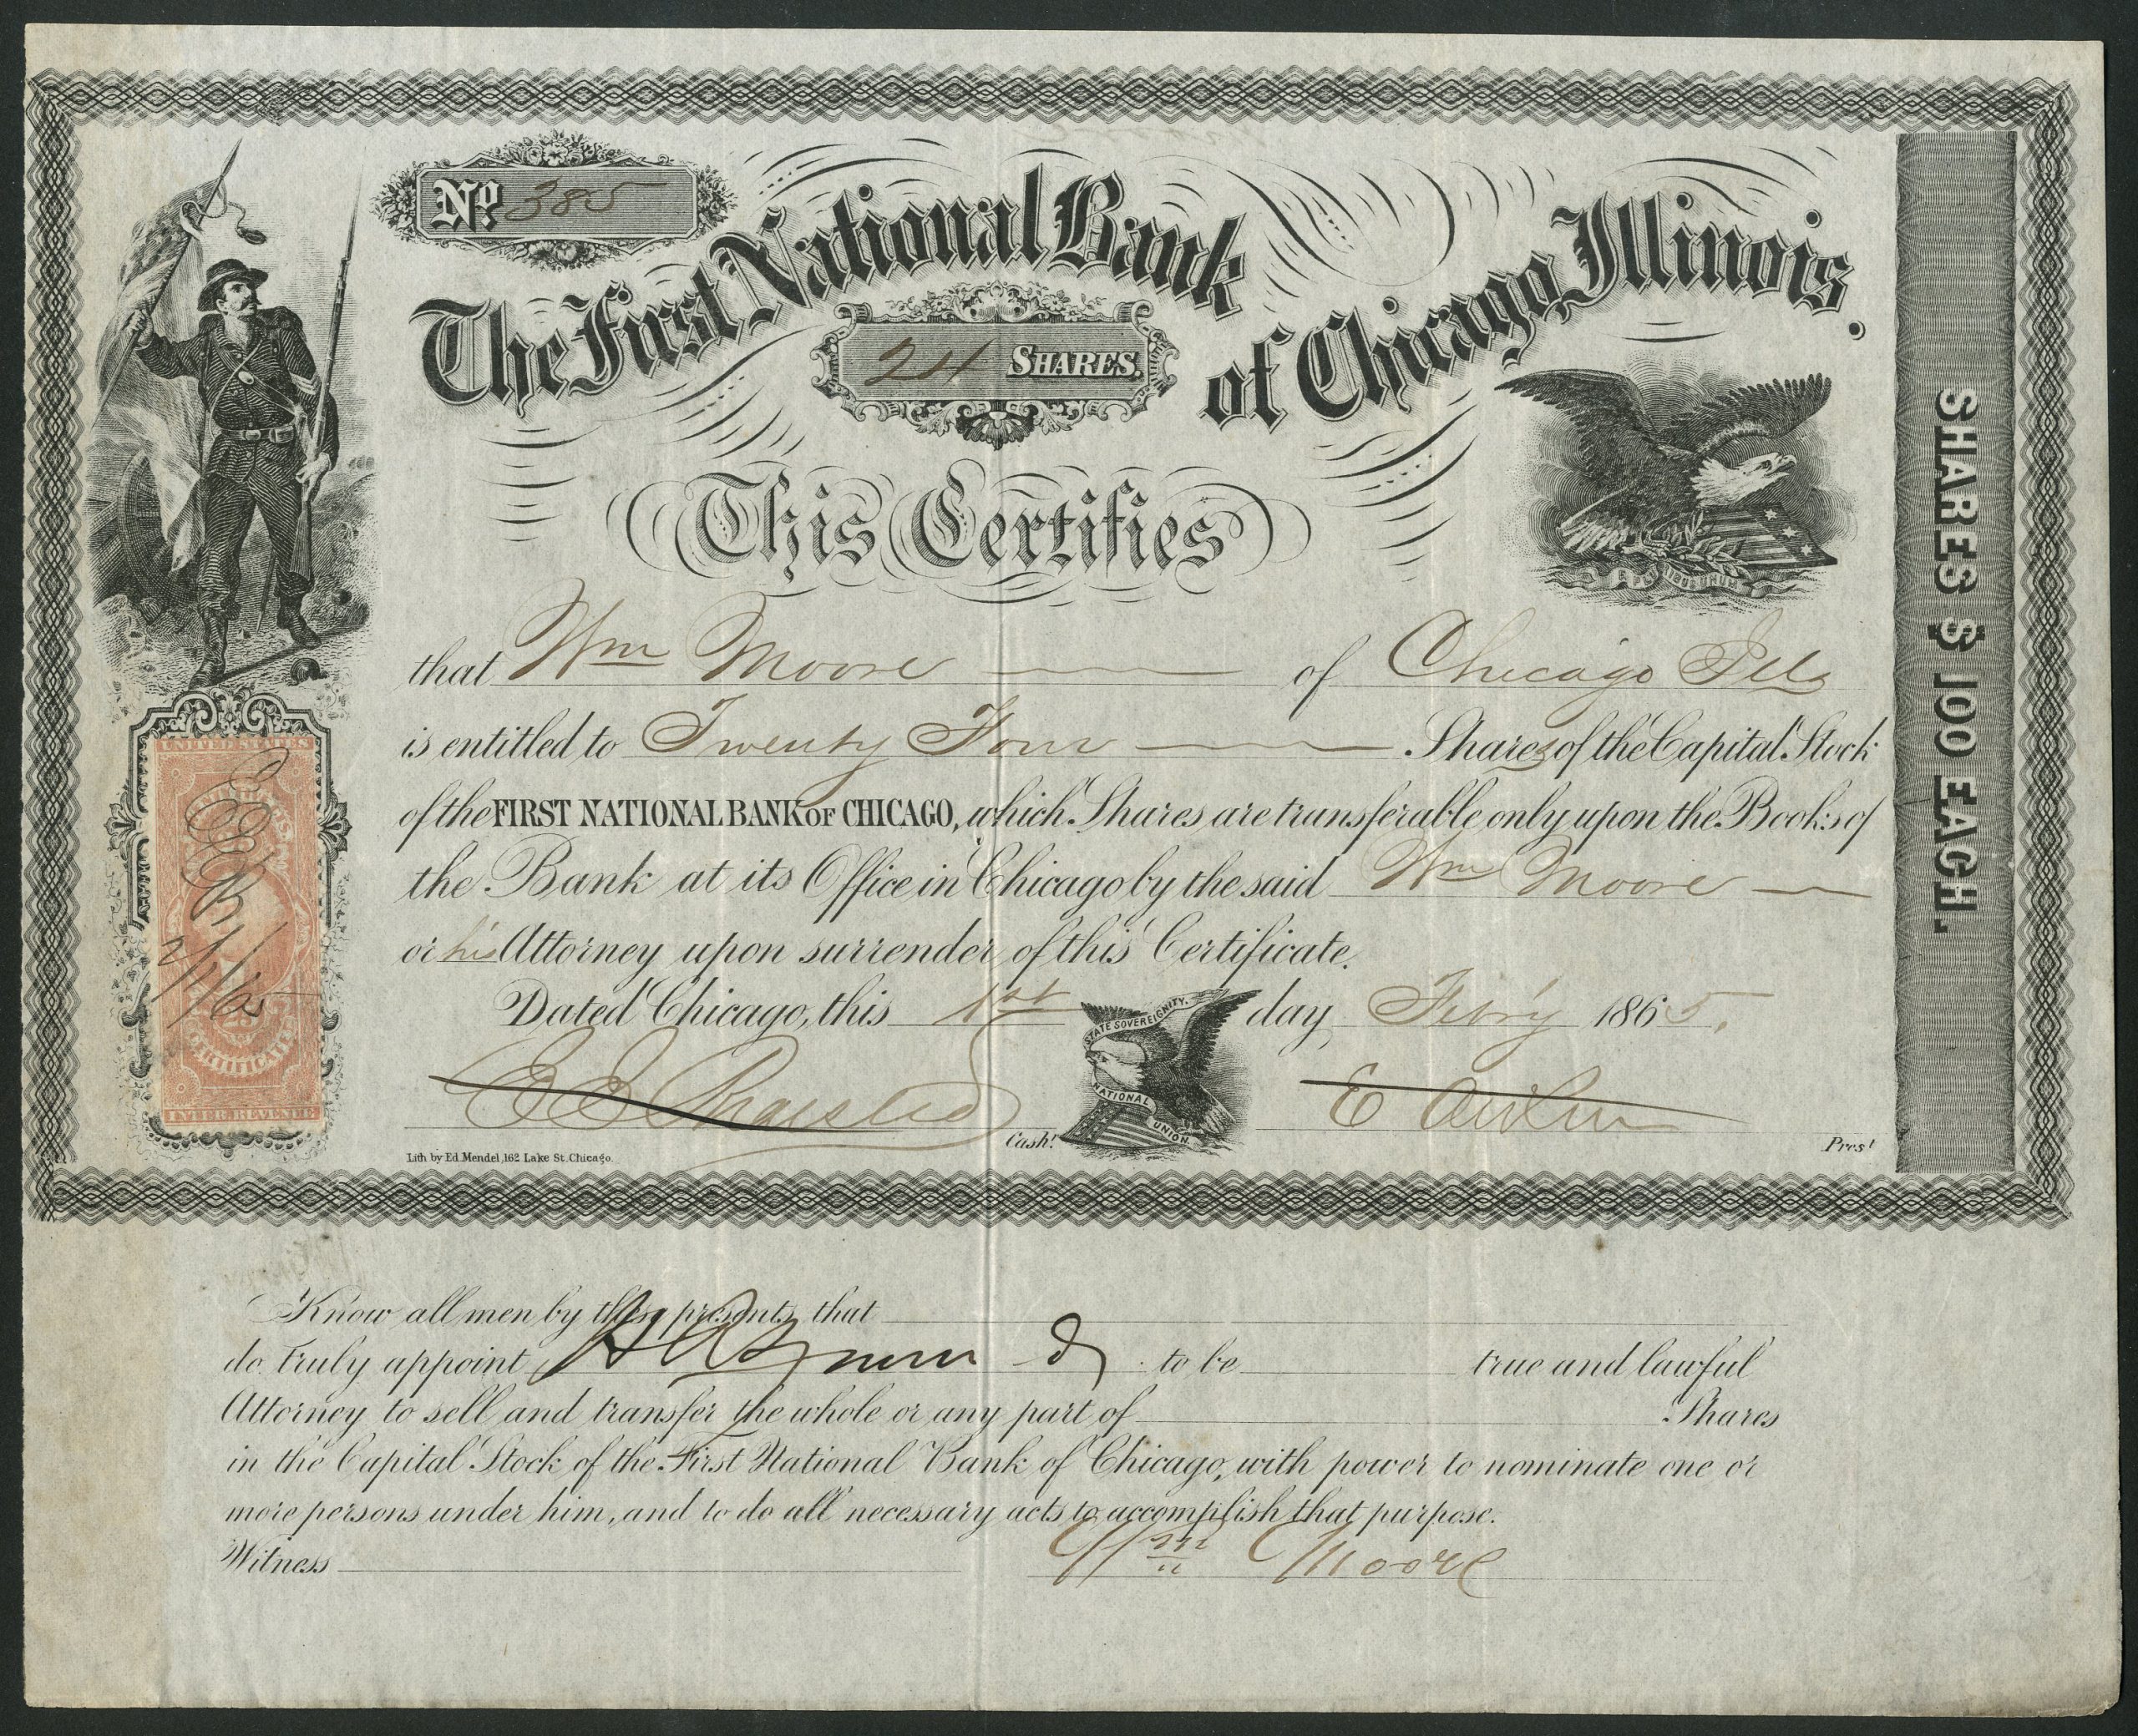 No. 385
The First National Bank
of Chicago, Illinois.
24 SHARES.
SHARES $100 EACH.
This Certifies
E PLURIBUS UNUM
that Wm Moore of Chicago Ills
is entitled to Twenty Four Shares of the Capital Stock
of the FIRST NATIONAL BANK OF CHICAGO, which Shares are transferable only upon the Books of
the Bank at its Office in Chicago by the said Wm Moore
or his Attorney upon surrender of this Certificate.
Dated Chicago, this 1st day Febry 1865.
STATE SOVEREIGNITY.
NATIONAL
UNION
E E Braisted Cash!
E Aiken Pres!
Lith by Ed. Mendel, 162 Lake St. Chicago.
UNITED STATES
EEB
2/1/65
25
CERTIFICATE
INTER. REVENUE
Know all men by these presents, that
do truly appoint to be true and lawful
Attorney to sell and transfer the whole or any part of Shares
in the Capital Stock of the First National Bank of Chicago, with power to nominate one or
more persons under him, and to do all necessary acts to accomplish that purpose.
Witness Wm Moore